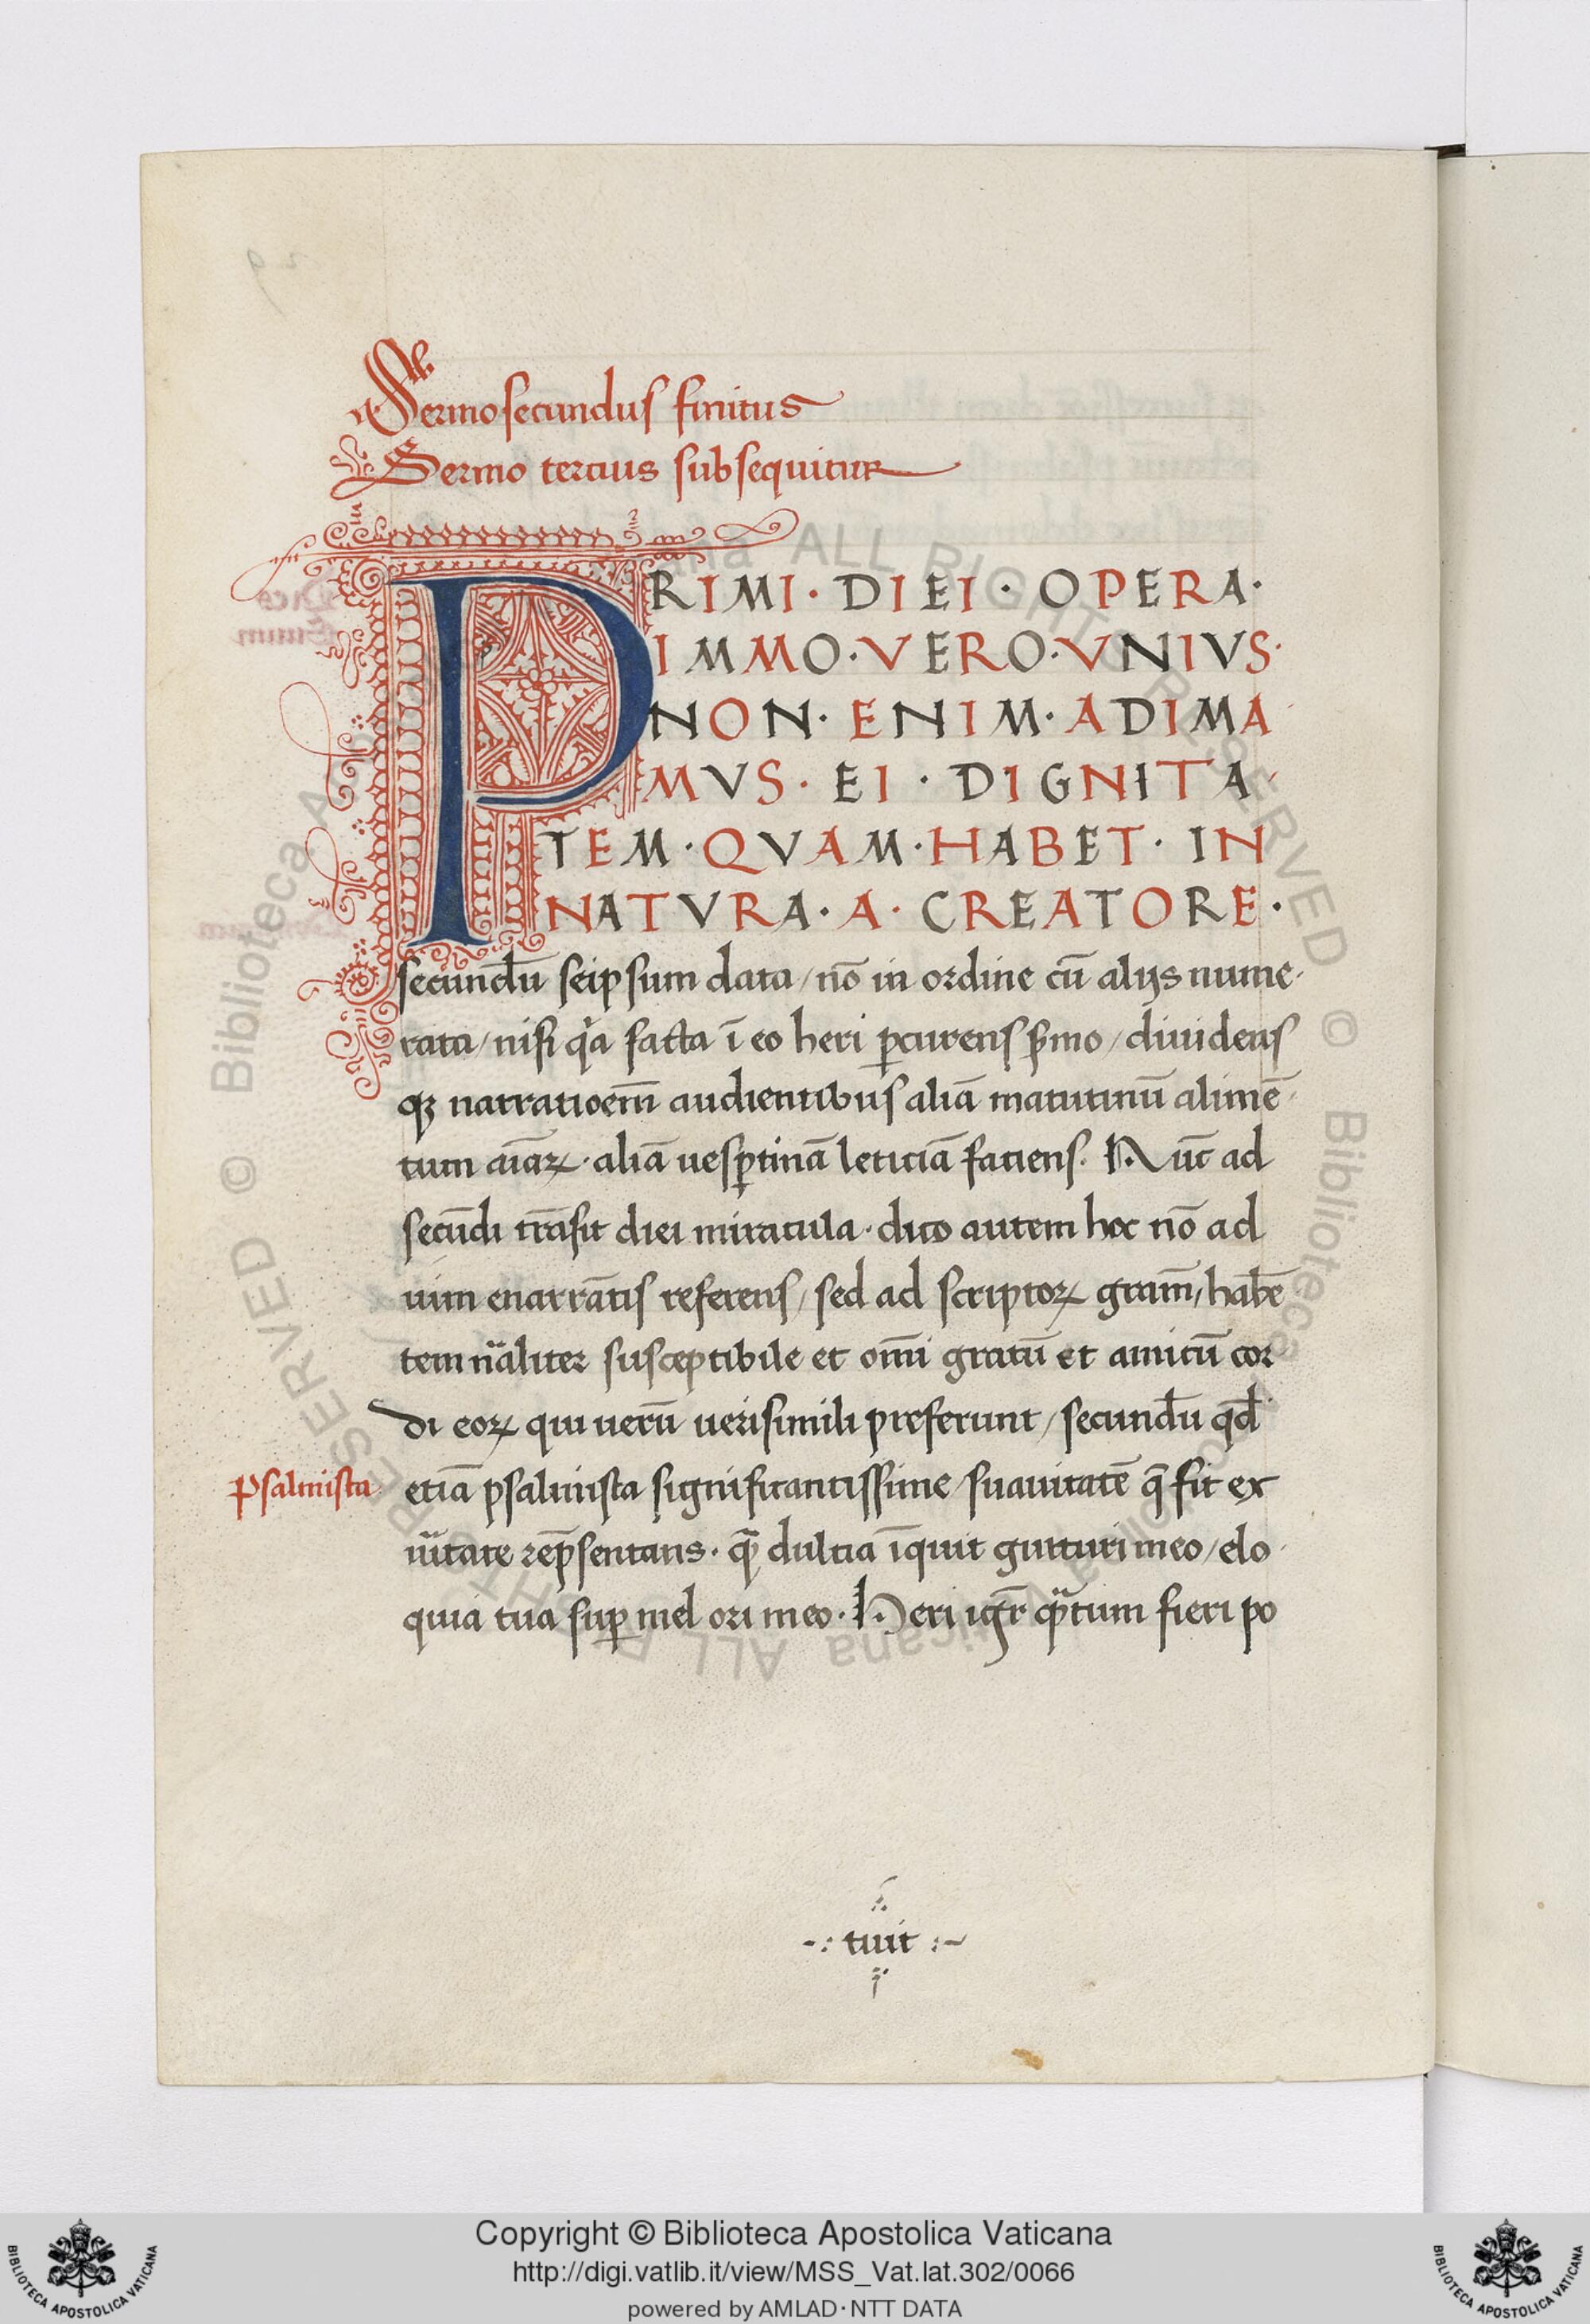 Sermo secundus finitus
Sermo tercius subsequitur
PRIMI · DIEI · OPERA ·
IMMO · VERO · VNIVS ·
NON · ENIM · ADIMA
MVS · EI · DIGNITA
TEM · QVAM · HABET · IN
NATVRA · A · CREATORE ·
secundū seipsum data / nō in ordine cū alijs nume
rata / nisi qa facta ī eo heri ꝑcurens ẜmo / diuidens
qꝫ narratioem̄ audientibus aliā matutinū alimē
tum aīaꝝ · aliā uesꝑtinā leticiā faciens. Nūc ad
secūdi trāsit diei miracula · dico autem hoc nō ad
uim enarrātis referens / sed ad scriptoꝝ gram̄ / habē
tem nāliter susceptibile et om̄i gratū et amicū cor
di eoꝝ qui uerū uerisimili preferunt / secundū qd̄
Psalmista
etiā psalmista significantissime suauitatē q̄ fit ex
ūitate rep̄sentans · q̄ dulcia īquit gutturi meo / elo
quia tua suꝑ mel ori meo · Heri igr̄ qtum fieri po
tuit
Copyright © Biblioteca Apostolica Vaticana
http://digi.vatlib.it/view/MSS_Vat.lat.302/0066
powered by AMLAD · NTT DATA
BIBLIOTECA APOSTOLICA VATICANA
BIBLIOTECA APOSTOLICA VATICANA